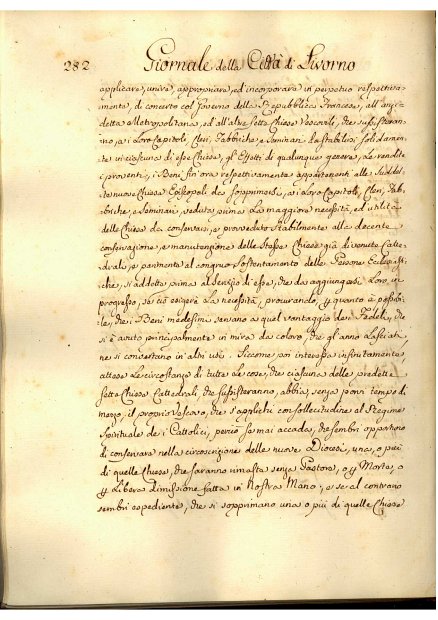 282 Giornale della Città di Livorno
applicare, unire, appropriare, ed incorporare in perpetuo respettiva-
mente, di concerto col Governo della Repubblica Francese, all'anzi-
detta Metropolitana, ed all'altre sette Chiese Vescovili, che sussisteran-
no, a i Loro Capitoli, Cleri, Fabbriche e Seminari da stabilirsi solidamen-
te in ciascuna di esse Chiese, gl'Effetti di qualunque genere, Le rendite
i proventi, i Beni fin'ora respettivamente appartenenti alle suddet-
te nuove Chiese Episcopali da sopprimersi, a i Loro Capitoli, Cleri, Fab-
briche, e Seminari, veduta prima La maggiore necessità, ed utilità
delle Chiese da conservarsi, e provveduto stabilmente alla decente
conservazione, e manutenzione delle stesse Chiese già divenute Catte-
drali, e parimente al congruo sostentamento delle Persone Ecclesiasti-
che, sì addette prima al servizio di esse, che da aggiungersi Loro, in
progresso, se ciò esigerà La necessità, procurando, per quanto è possibi-
le, che i Beni medesimi servano a quel vantaggio de i Fedeli, che
si è avuto principalmente in mira da coloro, che gli anno Lasciati,
ne si convertano in altri usi. Siccome poi interessa infinitamente,
attese Le circostanze di tutte Le cose, che ciascuna delle predette
sette Chiese Cattedrali, che sussisteranno, abbia, senza porvi tempo di
mezzo, il proprio Vescovo, che s'applichi con sollecitudine al Regime
Spirituale de i Cattolici, perciò se mai accada, che sembri opportuno
di conservare nella circoscrizione delle nuove Diocesi, una, o più
di quelle Chiese, che saranno rimaste senza Pastore, o per Morte, o
per Libera dimissione fatta in Nostra Mano; o se al contrario
sembri espediente, che si sopprimano una o più di quelle Chiese